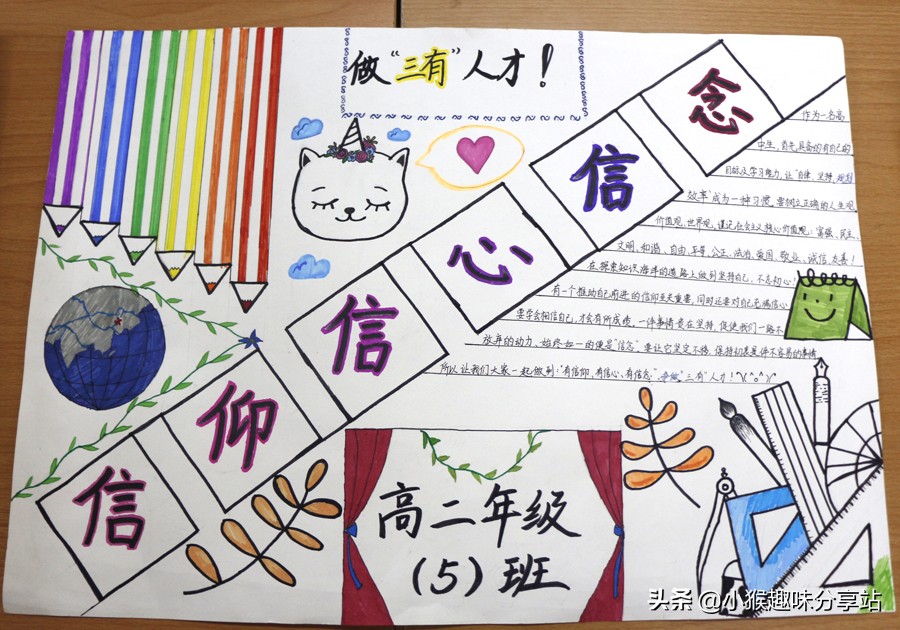 做“三有”人才！
信仰
信心
信念
作为一名高
中生，首先具备的有自己的
目标及学习能力，让“自律，坚持，规划
效率”成为一种习惯，要树立正确的人生观
价值观，世界观，谨记社会主义核心价值观：富强、民主、
文明、和谐、自由、平等、公正、法治、爱国、敬业、诚信、友善！
在探索知识海洋的道路上做到坚持自己，不忘初心！
有一个推动自己前进的信仰至关重要，同时还要对自己充满信心
要学会相信自己，才会有所成绩，一件事情贵在坚持，促使我们一路不
放弃的动力，始终如一的便是“信念”，要让它坚定不移，保持初衷是件不容易的事情
所以让我们大家一起做到：“有信仰、有信心、有信念”，争做“三有”人才！
高二年级
（5）班
头条 @小猴趣味分享站